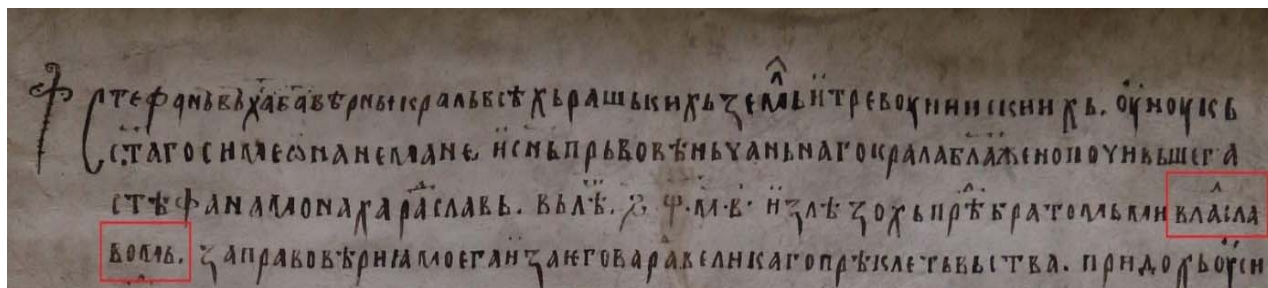 Стефань въ ха ба вѣрны краль всѣхь рашькихь земль и тревоуниискиихь. оуноукь
стаго симеѡна немане. и снь прьвовѣньчаньнаго крала блаженопочившега
стѣфана монаха раслава. вь лѣ. ҂ѕ. ѱ. м. в. излѣзохь прѣ братомь ми владисла
вомь. за правовѣрию моега и за него вара великаго прѣклетьвьства. придохь оу си